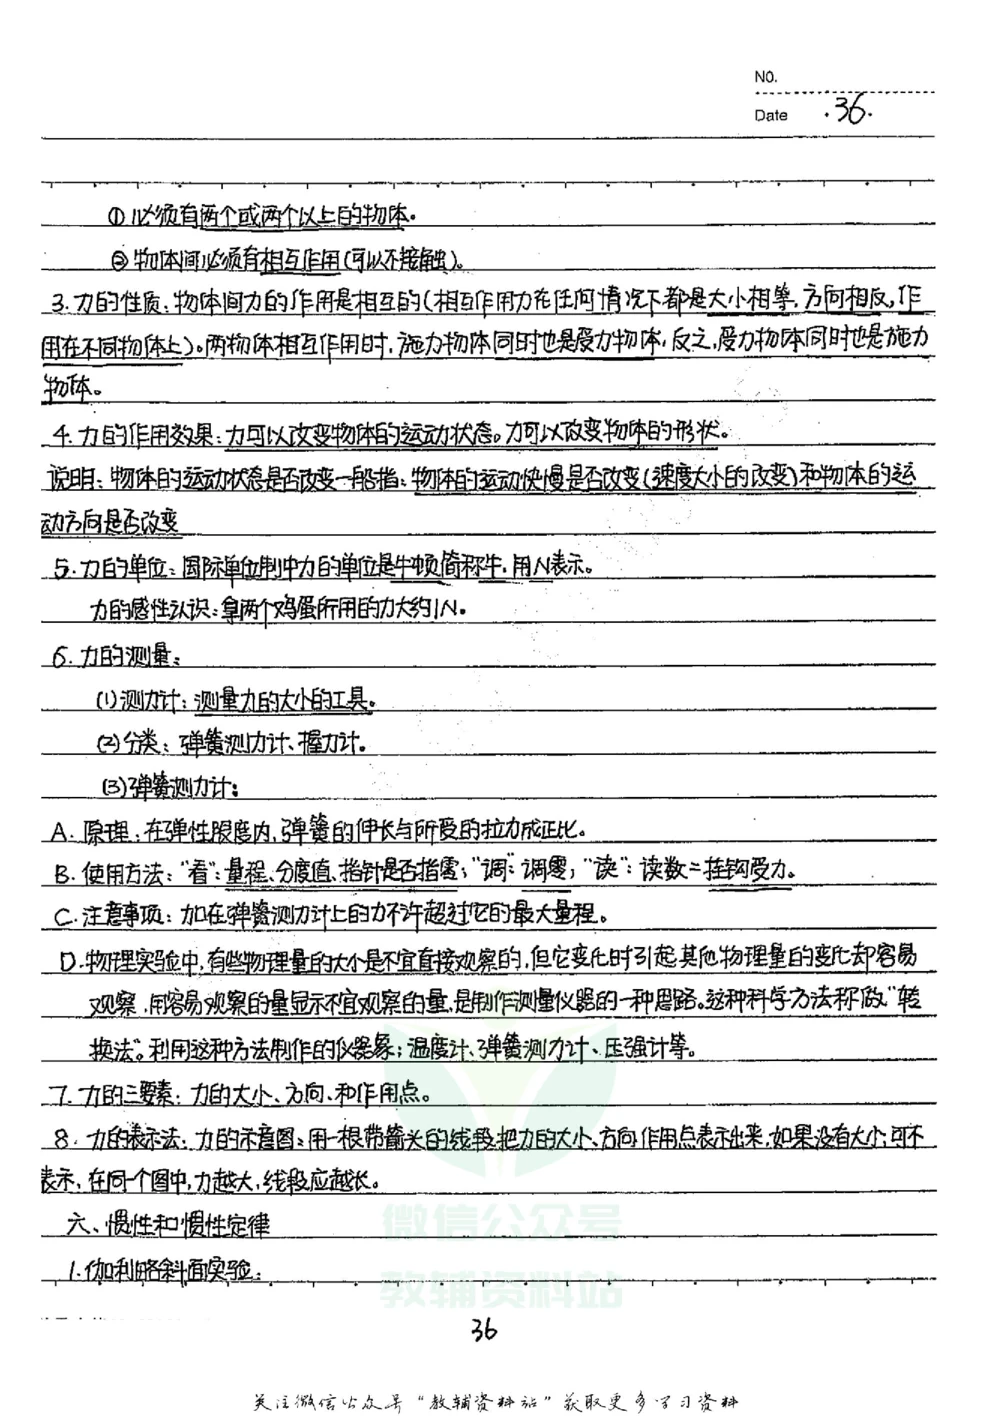 NO.
Date ·36·
①必须有两个或两个以上的物体。
②物体间必须有相互作用(可以不接触)。
3.力的性质:物体间力的作用是相互的(相互作用力在任何情况下都是大小相等,方向相反,作
用在不同物体上)。两物体相互作用时,施力物体同时也是受力物体,反之,受力物体同时也是施力
物体。
4.力的作用效果:力可以改变物体的运动状态。力可以改变物体的形状。
说明:物体的运动状态是否改变一般指:物体的运动快慢是否改变(速度大小的改变)和物体的运
动方向是否改变
5.力的单位:国际单位制中力的单位是牛顿简称牛,用N表示。
力的感性认识:拿两个鸡蛋所用的力大约1N。
6.力的测量:
(1)测力计:测量力的大小的工具。
(2)分类:弹簧测力计、握力计。
(3)弹簧测力计:
A.原理:在弹性限度内,弹簧的伸长与所受的拉力成正比。
B.使用方法:"看":量程、分度值、指针是否指零;"调":调零;"读":读数=挂钩受力。
C.注意事项:加在弹簧测力计上的力不许超过它的最大量程。
D.物理实验中,有些物理量的大小是不宜直接观察的,但它变化时引起其他物理量的变化却容易
观察,用容易观察的量显示不宜观察的量,是制作测量仪器的一种思路。这种科学方法称做"转
换法"。利用这种方法制作的仪器象:温度计、弹簧测力计、压强计等。
7.力的三要素:力的大小、方向、和作用点。
8.力的表示法:力的示意图:用一根带箭头的线段把力的大小、方向、作用点表示出来,如果没有大小,可不
表示,在同一个图中,力越大,线段应越长。
六、惯性和惯性定律
1.伽利略斜面实验:
微信公众号
教辅资料站
36
关注微信公众号"教辅资料站"获取更多学习资料